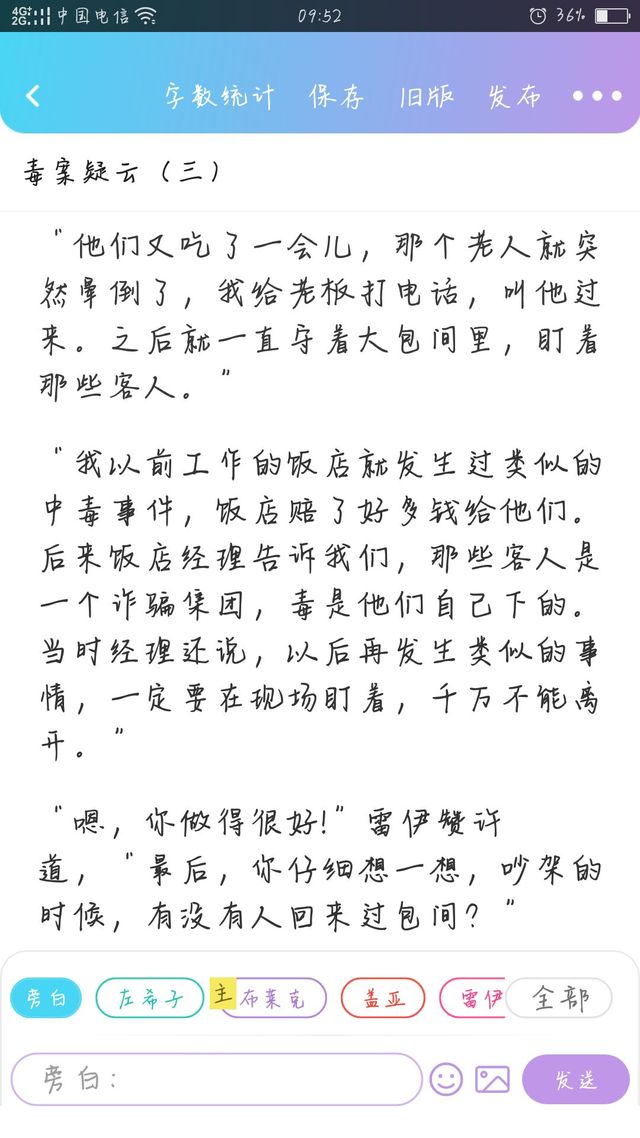 4G+ 2G 中国电信 09:52 36%
字数统计 保存 旧版 发布
毒案疑云（三）
“他们又吃了一会儿，那个老人就突
然晕倒了，我给老板打电话，叫他过
来。之后就一直守着大包间里，盯着
那些客人。”
“我以前工作的饭店就发生过类似的
中毒事件，饭店赔了好多钱给他们。
后来饭店经理告诉我们，那些客人是
一个诈骗集团，毒是他们自己下的。
当时经理还说，以后再发生类似的事
情，一定要在现场盯着，千万不能离
开。”
“嗯，你做得很好!”雷伊赞许
道，“最后，你仔细想一想，吵架的
时候，有没有人回来过包间？”
旁白 左希子 主 布莱克 盖亚 雷伊 全部
旁白： 发送